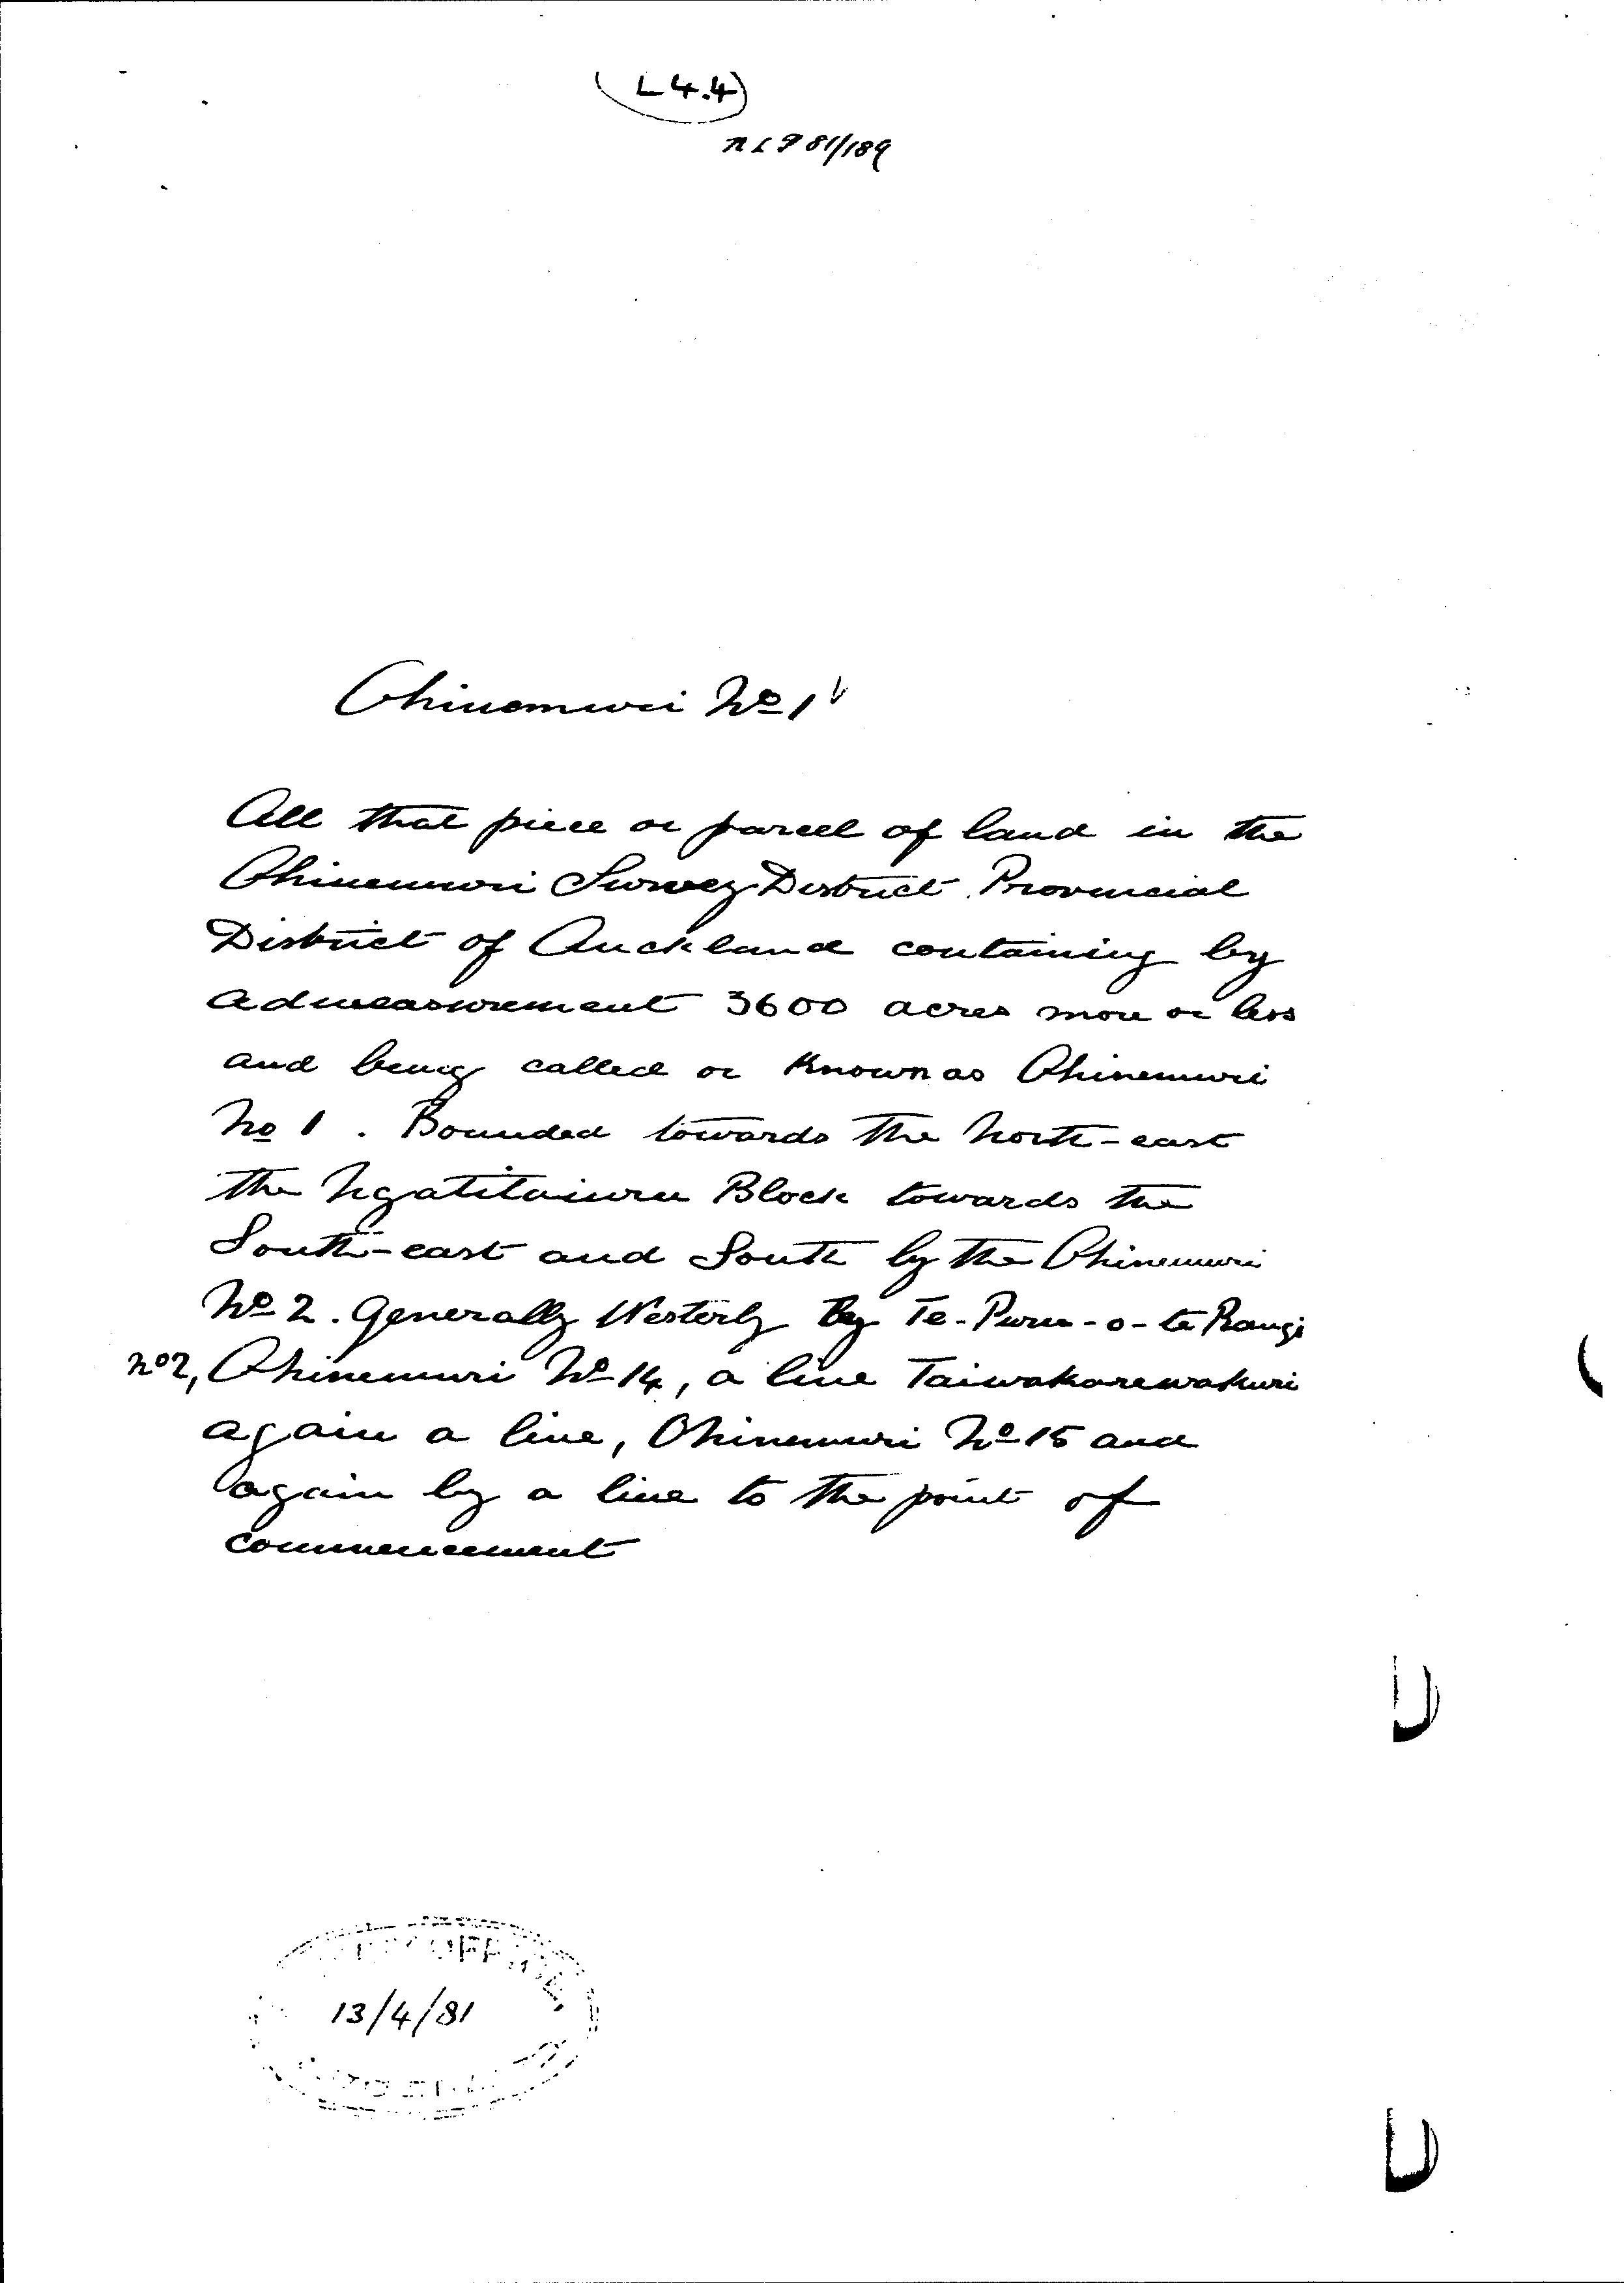 (L 4.4)
NLP 81/189
Ohinemuri No 1
All that piece or parcel of land in the
Ohinemuri Survey District Provincial
District of Auckland containing by
admeasurement 3600 acres more or less
and being called or known as Ohinemuri
No 1. Bounded towards the North-east
the Ngatitaiuru Block towards the
South-east and South by the Ohinemuri
No 2. Generally Westerly by Te-Puru-o-te Rangi
No 2, Ohinemuri No 14, a line Taiwakarewakuri
again a line, Ohinemuri No 15 and
again by a line to the point of
commencement
13/4/81